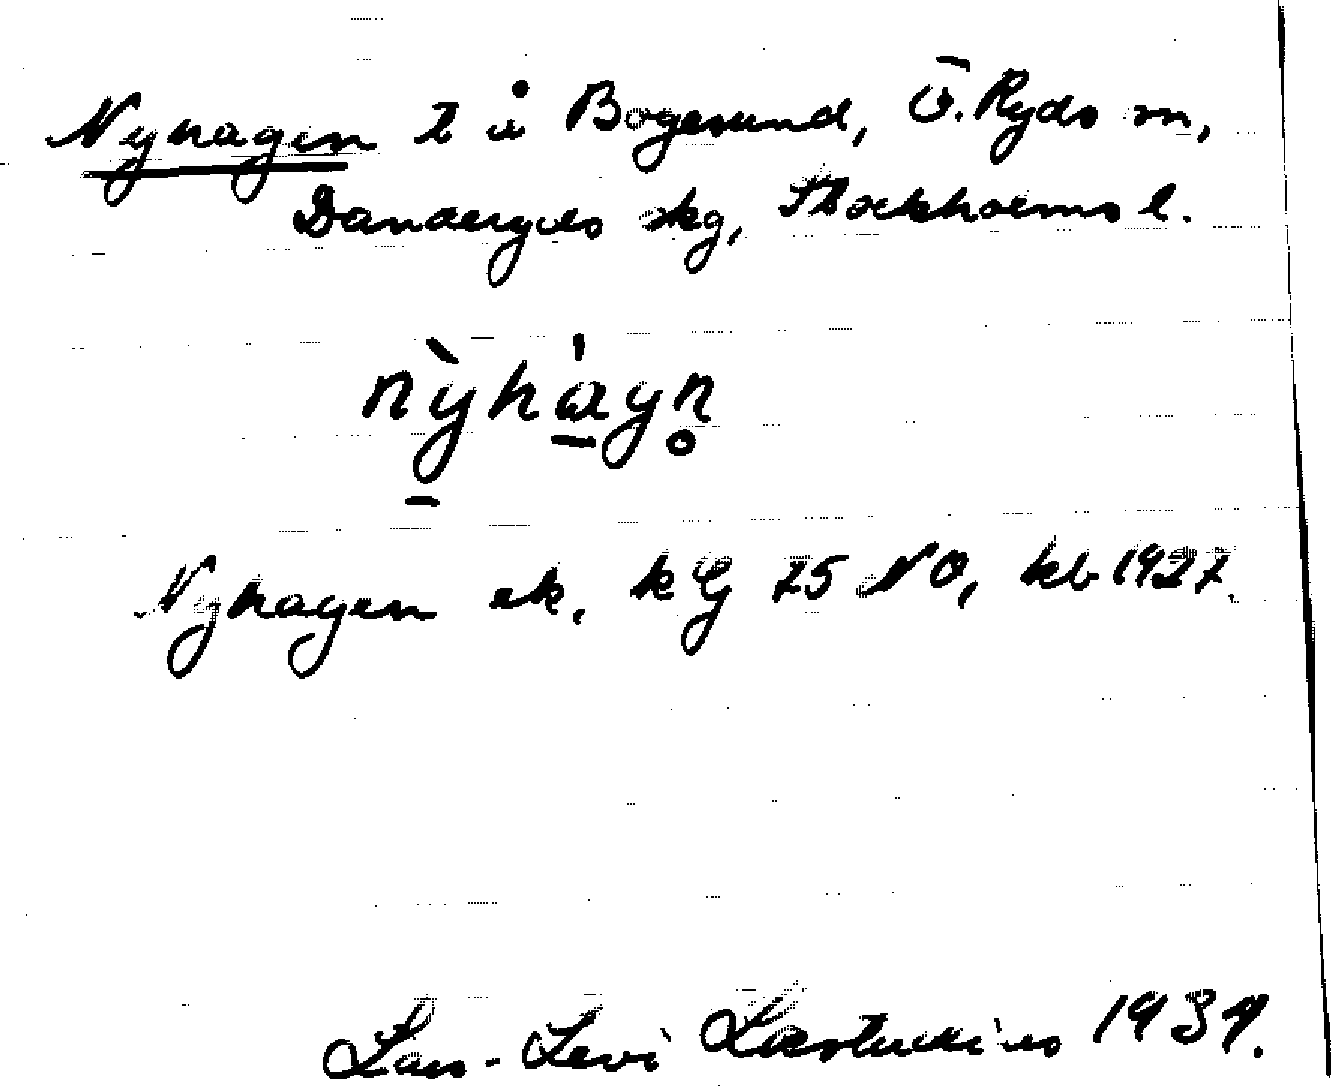 Nyhagen t å Bogesund, Ö. Ryds sn,
Danderyds skg, Stockholms l.
nỳ̱há̱gn̥
Nyhagen ek. k G 75 NO, kb 1927.
Lars-Levi Læstadius 1937.